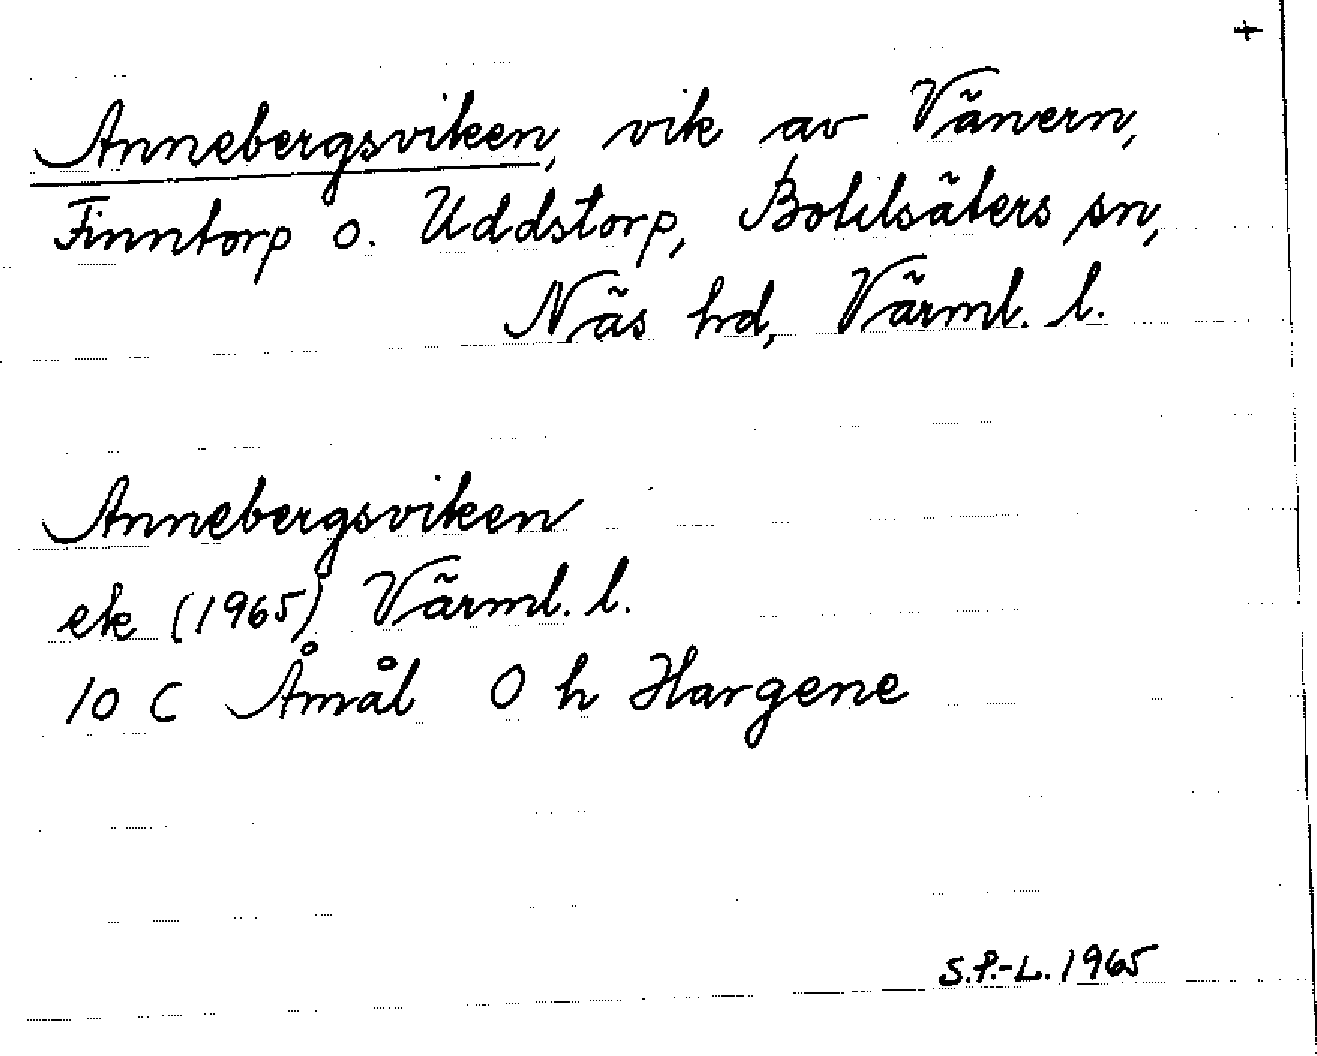 +
Annebergsviken, vik av Vänern,
Finntorp o. Uddstorp, Botilsäters sn,
Näs hd, Värml. l.
Annebergsviken
ek (1965) Värml. l.
10 C Åmål O h Hargene
S.P.-L. 1965